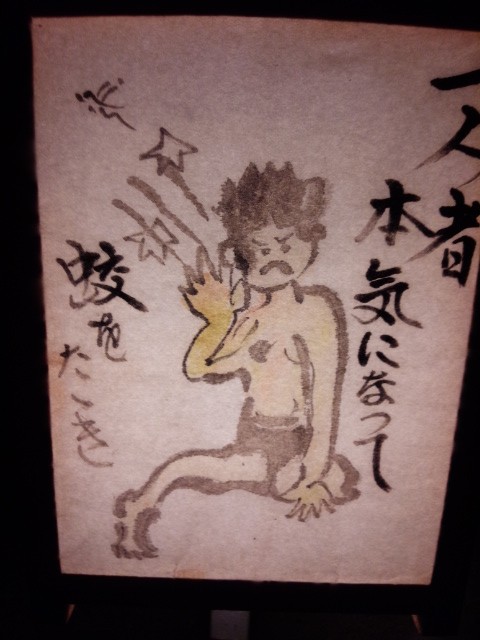 一人者
本気になって
蚊をたゝき